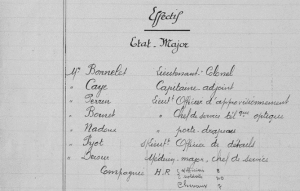 Effectif
Etat-Major
Mr Bonnelet Lieutenant-Colonel
" Caye Capitaine-adjoint
" Perrin Lieutt Officier d'approvisionnement
" Bornet " Chef de service optique
" Nadone " porte-drapeau
" Pyot s/Lieutt Officier de détails
" Médecin-major, chef de service
Compagnie H.R. officiers
Chevaux